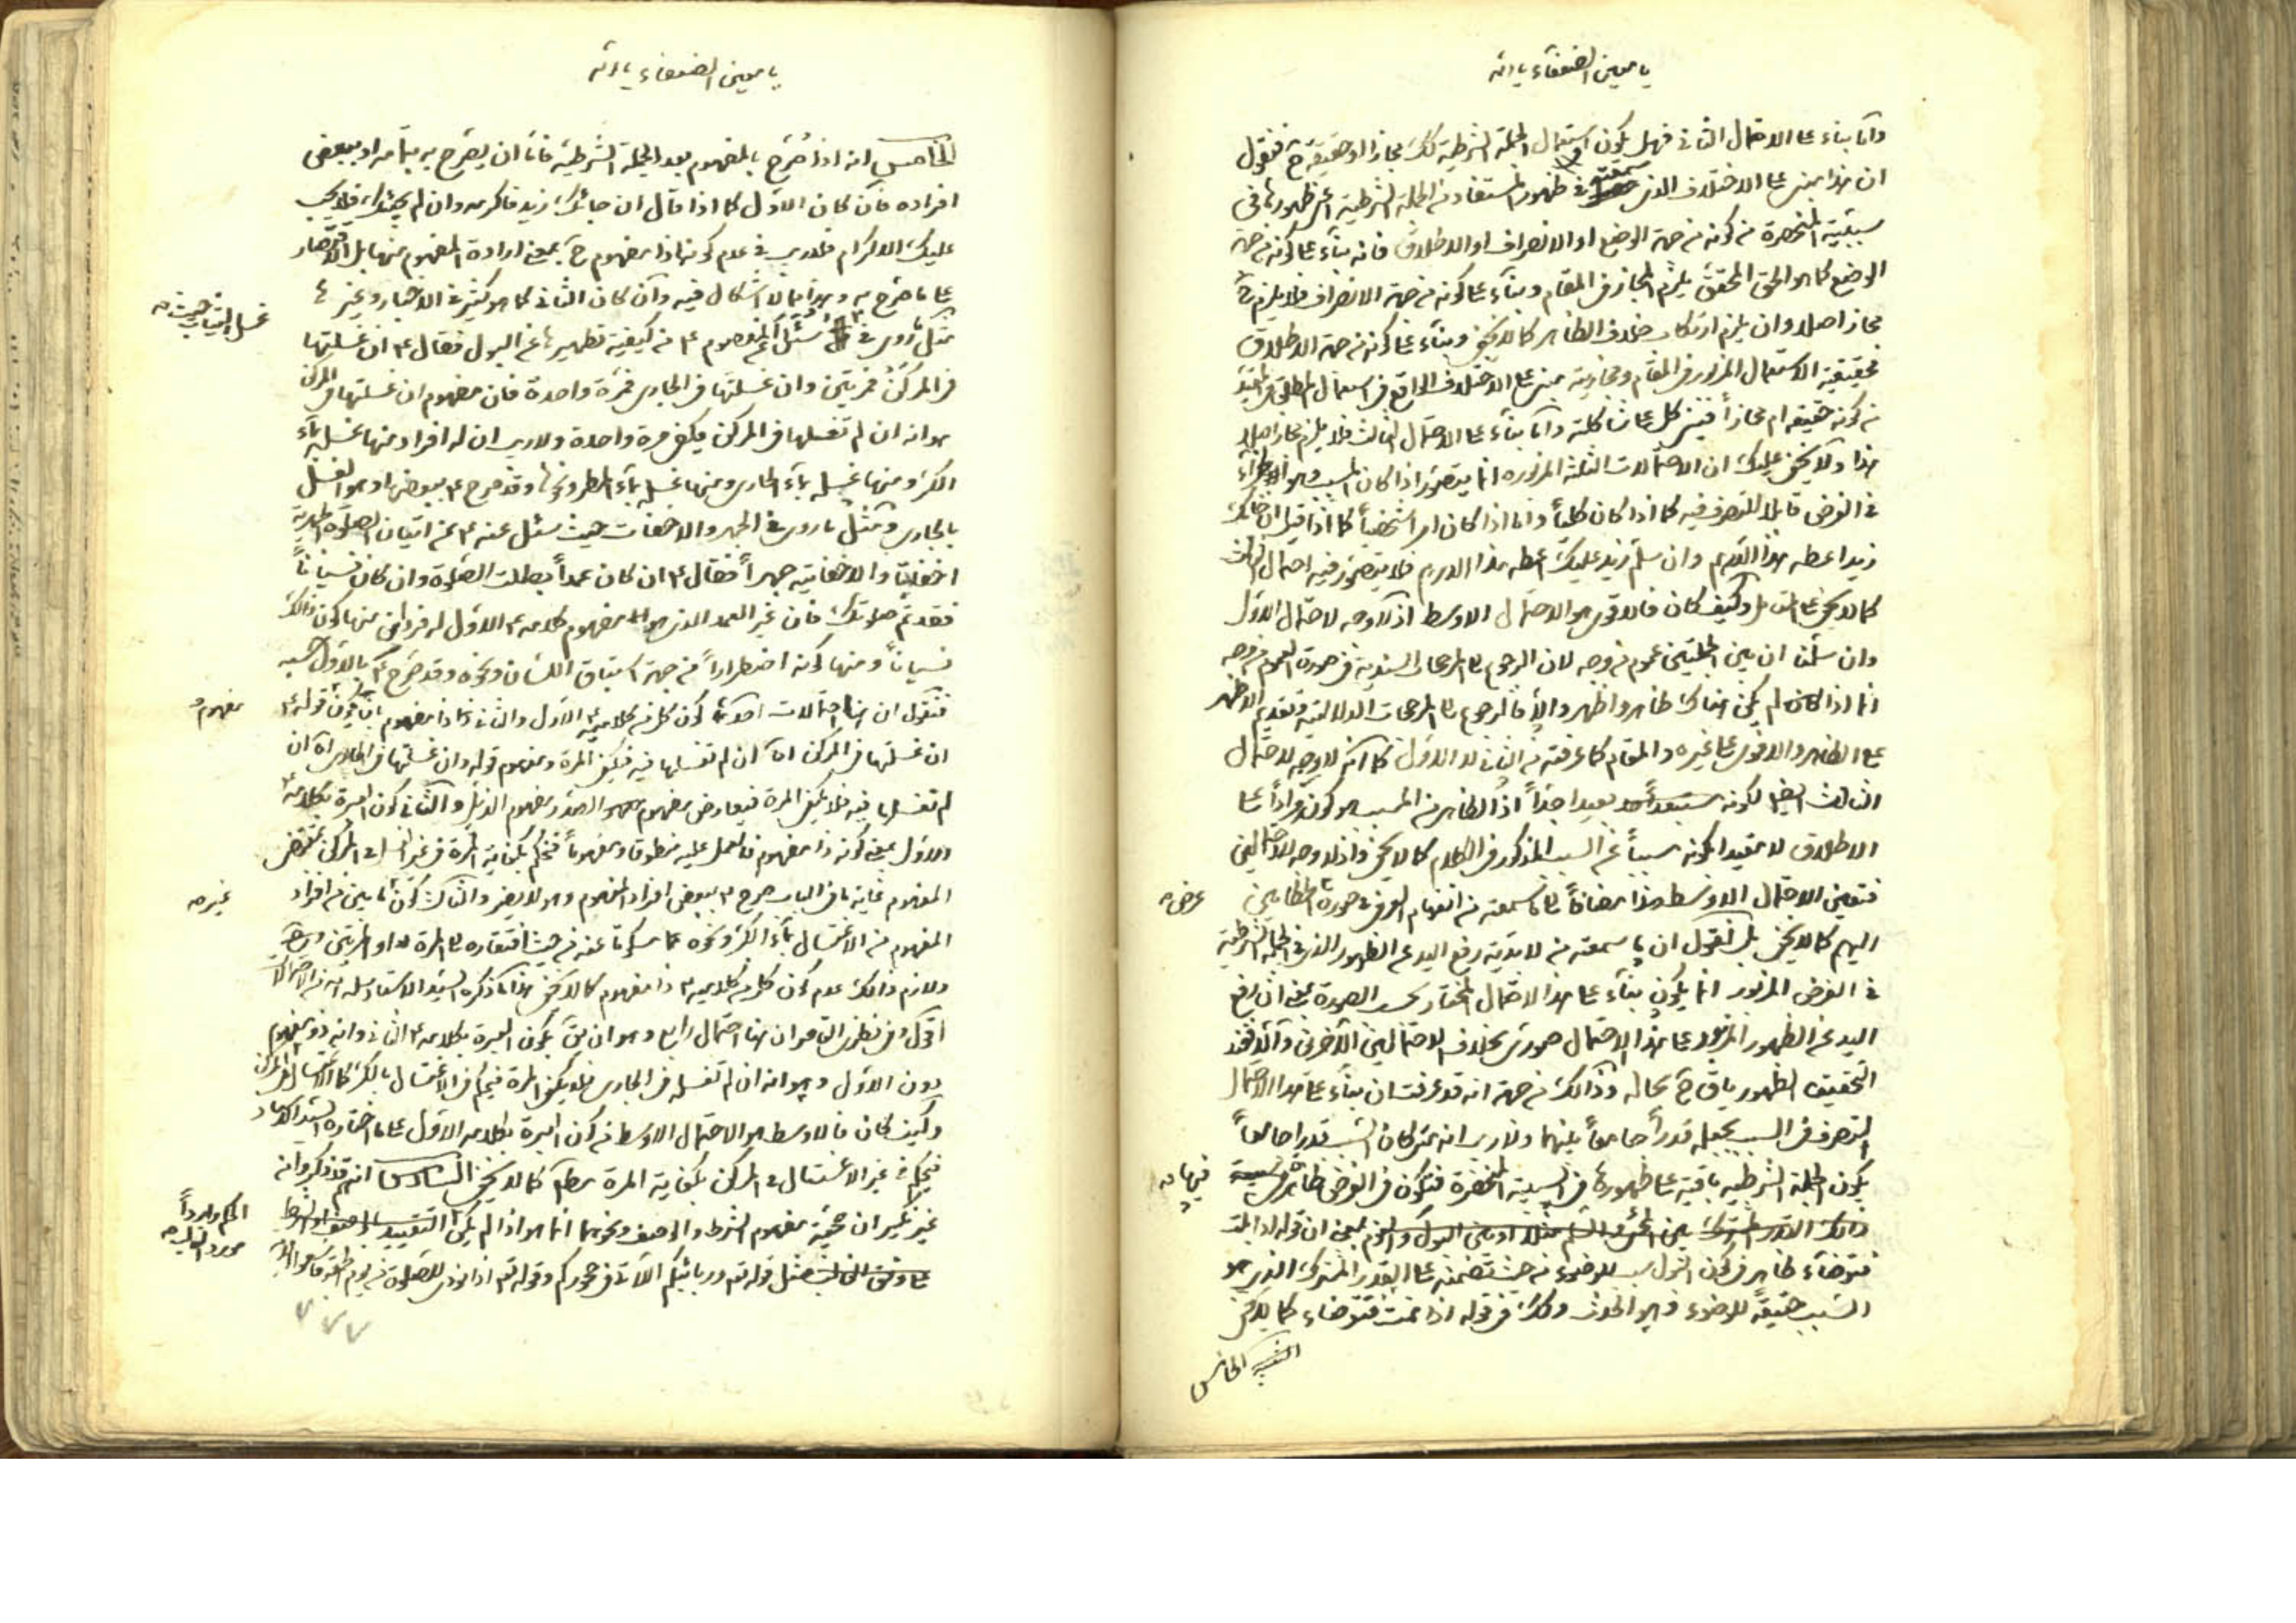 يا معين الضعفاء يا الله
وامّا بناء على الاحتمال الثاني فهل يكون استعمال الجملة الشرطية كك مجازا او حقيقة ح فنقول
ان هذا مبنى على الاختلاف الذى سمعته فى ظهور المستفاد من الجملة الشرطية اعنى ظهورها فى
سببية المنحصرة من كونه من جهة الوضع او الانصراف او الاطلاق فانه بناء على كونه من جهة
الوضع كما هو الحق المحقق يلزم المجاز فى المقام وبناء على كونه من جهة الانصراف فلا يلزم ح
مجاز اصلا وان يلزم ارتكاب خلاف الظاهر كما لا يخفى وبناء على كونه من جهة الاطلاق
فحقيقية الاستعمال المزبور فى المقام ومجازيته مبنى على الاختلاف الواقع فى استعمال المطلق فى المقيد
من كونه حقيقة ام مجازاً فيبنى كل على شاكلته وامّا بناء على الاحتمال الثالث فلا يلزم مجاز اصلا
هذا ولا يخفى عليك ان الاحتمالات الثلثة المزبوره انما يتصور اذا كان المسبب وهو الجزاء
فى الفرض قابلا للتصرف فيه كما اذا كان كلياً واما اذا كان امرا شخصياً كما اذا قيل ان جائك
زيد اعطه هذا الدرهم وان سلّم زيد عليك اعطه هذا الدرهم فلا يتصور فيه احتمال الثالث
كما لا يخفى على المتامل وكيف كان فالاقوى هو الاحتمال الاوسط اذ لا وجه لاحتمال الاول
وان سلّمنا ان بين الجملتين عموم من وجه لان الرجوع الى المرجحات السندية فى صورة العموم من وجه
انما اذا كان لم يكن هناك ظاهر واظهر والا فالرجوع الى المرجحات الدلالتية وتقديم الاظهر
على الظاهر والاقوى على غيره والمقام كما عرفته من الثانى لا الاول كما انه لا وجه لاحتمال
الثالث ايضا لكونه بعيدا جداً اذ الظاهر من المسبب هو كونه مراداً على
الاطلاق لا مقيدا بكونه مسبباً عن السبب المذكور فى الكلام كما لا يخفى واذ لا وجه للاحتمالين
فتعين الاحتمال الاوسط هذا مضافاً الى ما سمعته من انفهام العرف فى صورة الخطابين عرض
اليهم كما لا يخفى بل نقول ان ما سمعته من لا بدّية رفع اليد عن الظهور الذى فى الجملة الشرطية
فى الفرض المزبور انما يكون بناء على هذا الاحتمال المختار بحسب الصورة بمعنى ان رفع
اليد عن الظهور المزبور على هذا الاحتمال صورى بخلاف الاحتمالين الآخرين والا فعند
التحقيق الظهور باق ح بحاله وذالك من جهة انه قد عرفت ان بناء على هذا الاحتمال
التصرف فى السبب بجعله قدراً جامعاً بينهما ولا ريب انه متى كان السبب قدرا جامعاً
يكون الجملة الشرطية باقية على ظهورها فى السببية المنحصرة فتكون فى الفرض ظاهرة فيها
بمعنى ان قوله اذا بلت
فتوضأء ظاهر فى كون البول سبب للوضوء من حيث تضمنه على القدر المشترك الذى هو
السبب حقيقةً للوضوء وهو الحدث وكك فى قوله اذا نمت فتوضاء كما لا يخفى
التنبيه الخامس
يا معين الضعفاء يا الله
الخامس انه اذا صُرّح بالمفهوم بعد الجملة الشرطية فامّا ان يصرح به بتمامه او ببعض
افراده فان كان الاوّل كما اذا قال ان جائك زيد فاكرمه وان لم يجئك فلا يجب
عليك الاكرام فلا ريب فى عدم كونها ذا مفهوم ح بمعنى ارادة المفهوم منها بل الاقتصار
على ما صُرّح به وهذا مما لا اشكال فيه وان كان الثانى كما هو كثير فى الاخبار وغيرها
مثل ما روى فى غسل الثياب حيث سئل عن المعصوم ع من كيفية تطهيرها عن البول فقال ع ان غسلتها
فى المركن فمرّتين وان غسلتها فى الجارى فمرّة واحدة فان مفهوم ان غسلتها فى المركن
هو انه ان لم تغسلها فى المركن يكفى مرة واحدة ولا ريب ان له افراد منها غسله بمآء
الكر ومنها غسله بمآء الجارى ومنها غسله بمآء المطر ونحوها وقد صرح ع ببعضها وهو الغسل
بالجارى ومثل ما روى فى الجهر والاخفات حيث سئل عنه ع عن اتيان الصلوة الجهرية
اخفاتيّا والاخفاتية جهراً فقال ع ان كان عمداً بطلت الصلوة وان كان نسياناً
فقد تم صلوتك فان غير العمد الذى هو مفهوم كلامه ع الاول له فردان منها كون ذالك
نسياناً ومنها كونه اضطراراً من جهة استباق اللسان ونحوه وقد صُرّح ع بالاول
فنقول ان هنا احتمالات احدها كون كل من كلاميه ع الاول والثانى ذا مفهوم بان يكون مفهوم قوله ع
ان غسلتها فى المركن اه ان لم تغسلها فيه فيكفى المرة ومفهوم قوله وان غسلتها فى الجارى اه ان
لم تغسلها فيه فلا يكفى المرة فيعارض مفهوم الصدر مفهوم الذيل والثانى كون العبرة بكلامه ع
الاول بمعنى كونه ذا مفهوم فالعمل عليه منطوقا ومفهوماً فنحكم بكفاية المرة فى غير الغسل فى المركن بمقتضى
المفهوم غاية ما فى الباب صرح ع ببعض افراد المفهوم وهو لا يضر والثالث كون ما بين من افراد غيره
المفهوم من الاغتسال بمآء الكر ونحوه مما مسكوتا عنه من حيث افتقاره الى المرة او المرتين
ولازم ذالك عدم كون كل من كلاميه ع ذا مفهوم كما لا يخفى هذا ما ذكره السيد الاستاد
اقول وفى نظرى القاصر ان هنا احتمال رابع وهو ان يكون العبرة بكلامه ع الثانى وانه ذو مفهوم
دون الاول وهو انه ان لم تغسله فى الجارى فلا يكفى المرة فيحكم فى الاغتسال بالكر كالاغتسال فى المركن
وكيف كان فالاوسط هو الاحتمال الاوسط من كون العبرة بكلامه الاول على ما اختاره السيد الاستاد
فيحكم فى غير الاغتسال فى المركن بكفاية المرة كما لا يخفى السادس انهم قد ذكروا انه
غير نكير ان حجيّة مفهوم الشرط والوصف ونحوهما انما هو اذا لم يكن الحكم واردا مورد الغالب
مثل قوله تعم وربائبكم اللآتى فى حجوركم وقوله تعم اذا نودى للصلوة من يوم الجمعة فاسعوا